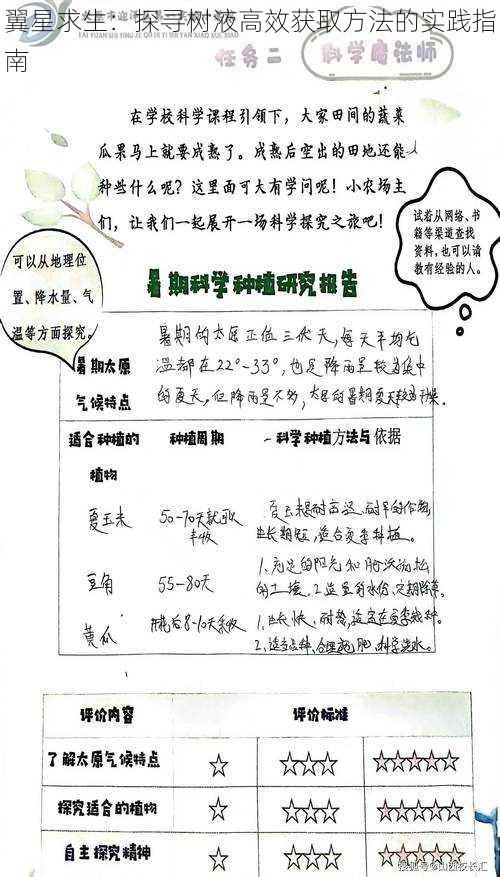 翼星求生：探寻树液高效获取方法的实践指南
任务二
科学魔法师
在学校科学课程引领下，大家田间的蔬菜
瓜果马上就要成熟了。成熟后空出的田地还能
种些什么呢？这里面可大有学问呢！小农场主
们，让我们一起展开一场科学探究之旅吧！
试着从网络、书
籍等渠道查找
资料，也可以请
教有经验的人。
可以从地理位
置、降水量、气
温等方面探究。
暑期科学种植研究报告
暑期太原
气候特点
暑期的太原正值三伏天，每天平均气
温都在22°-33°，也是降雨量较为集中
的夏天，但降雨量不多，太原的暑期夏天较为干燥。
适合种植的
植物
种植周期
科学种植方法与依据
夏玉米
50-70天就可以
丰收
生长期短，适合夏季种植。
豆角
55-80天
1、充足的阳光和肥沃疏松
的土壤。2、适量的水份，定期除草。
黄瓜
开花后8-10天采收
1、生长快、耐热，适宜在夏季栽种。
2、适当品种，合理施肥，科学浇水。
评价内容
评价标准
了解太原气候特点
☆
☆☆☆
☆☆☆☆☆
探究适合的植物
☆
☆☆☆
☆☆☆☆☆
自主探究精神
☆
☆☆☆
☆☆☆☆☆
搜狐号@山西校长汇